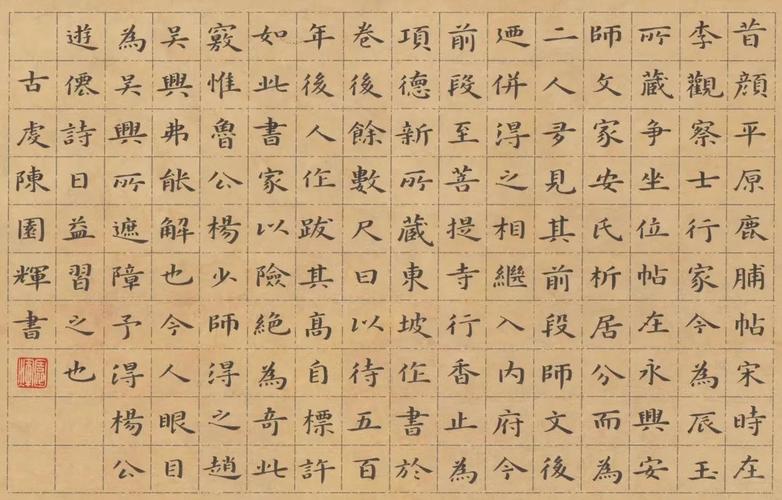 昔顏平原鹿脯帖宋時在
李觀察士行家今為辰玉
所藏爭坐位帖在永興安
師文家安氏析居分而為
二人多見其前段師文後
迺併得之相繼入內府今
前段至菩提寺行香止為
項德新所藏東坡作書於
卷後餘數尺曰以待五百
年後人作跋其高自標許
如此書家以險絕為奇此
竅惟魯公楊少師得之趙
吳興弗能解也今人眼目
為吳興所遮障予得楊公
遊僊詩日益習之也
古虔陳園輝書